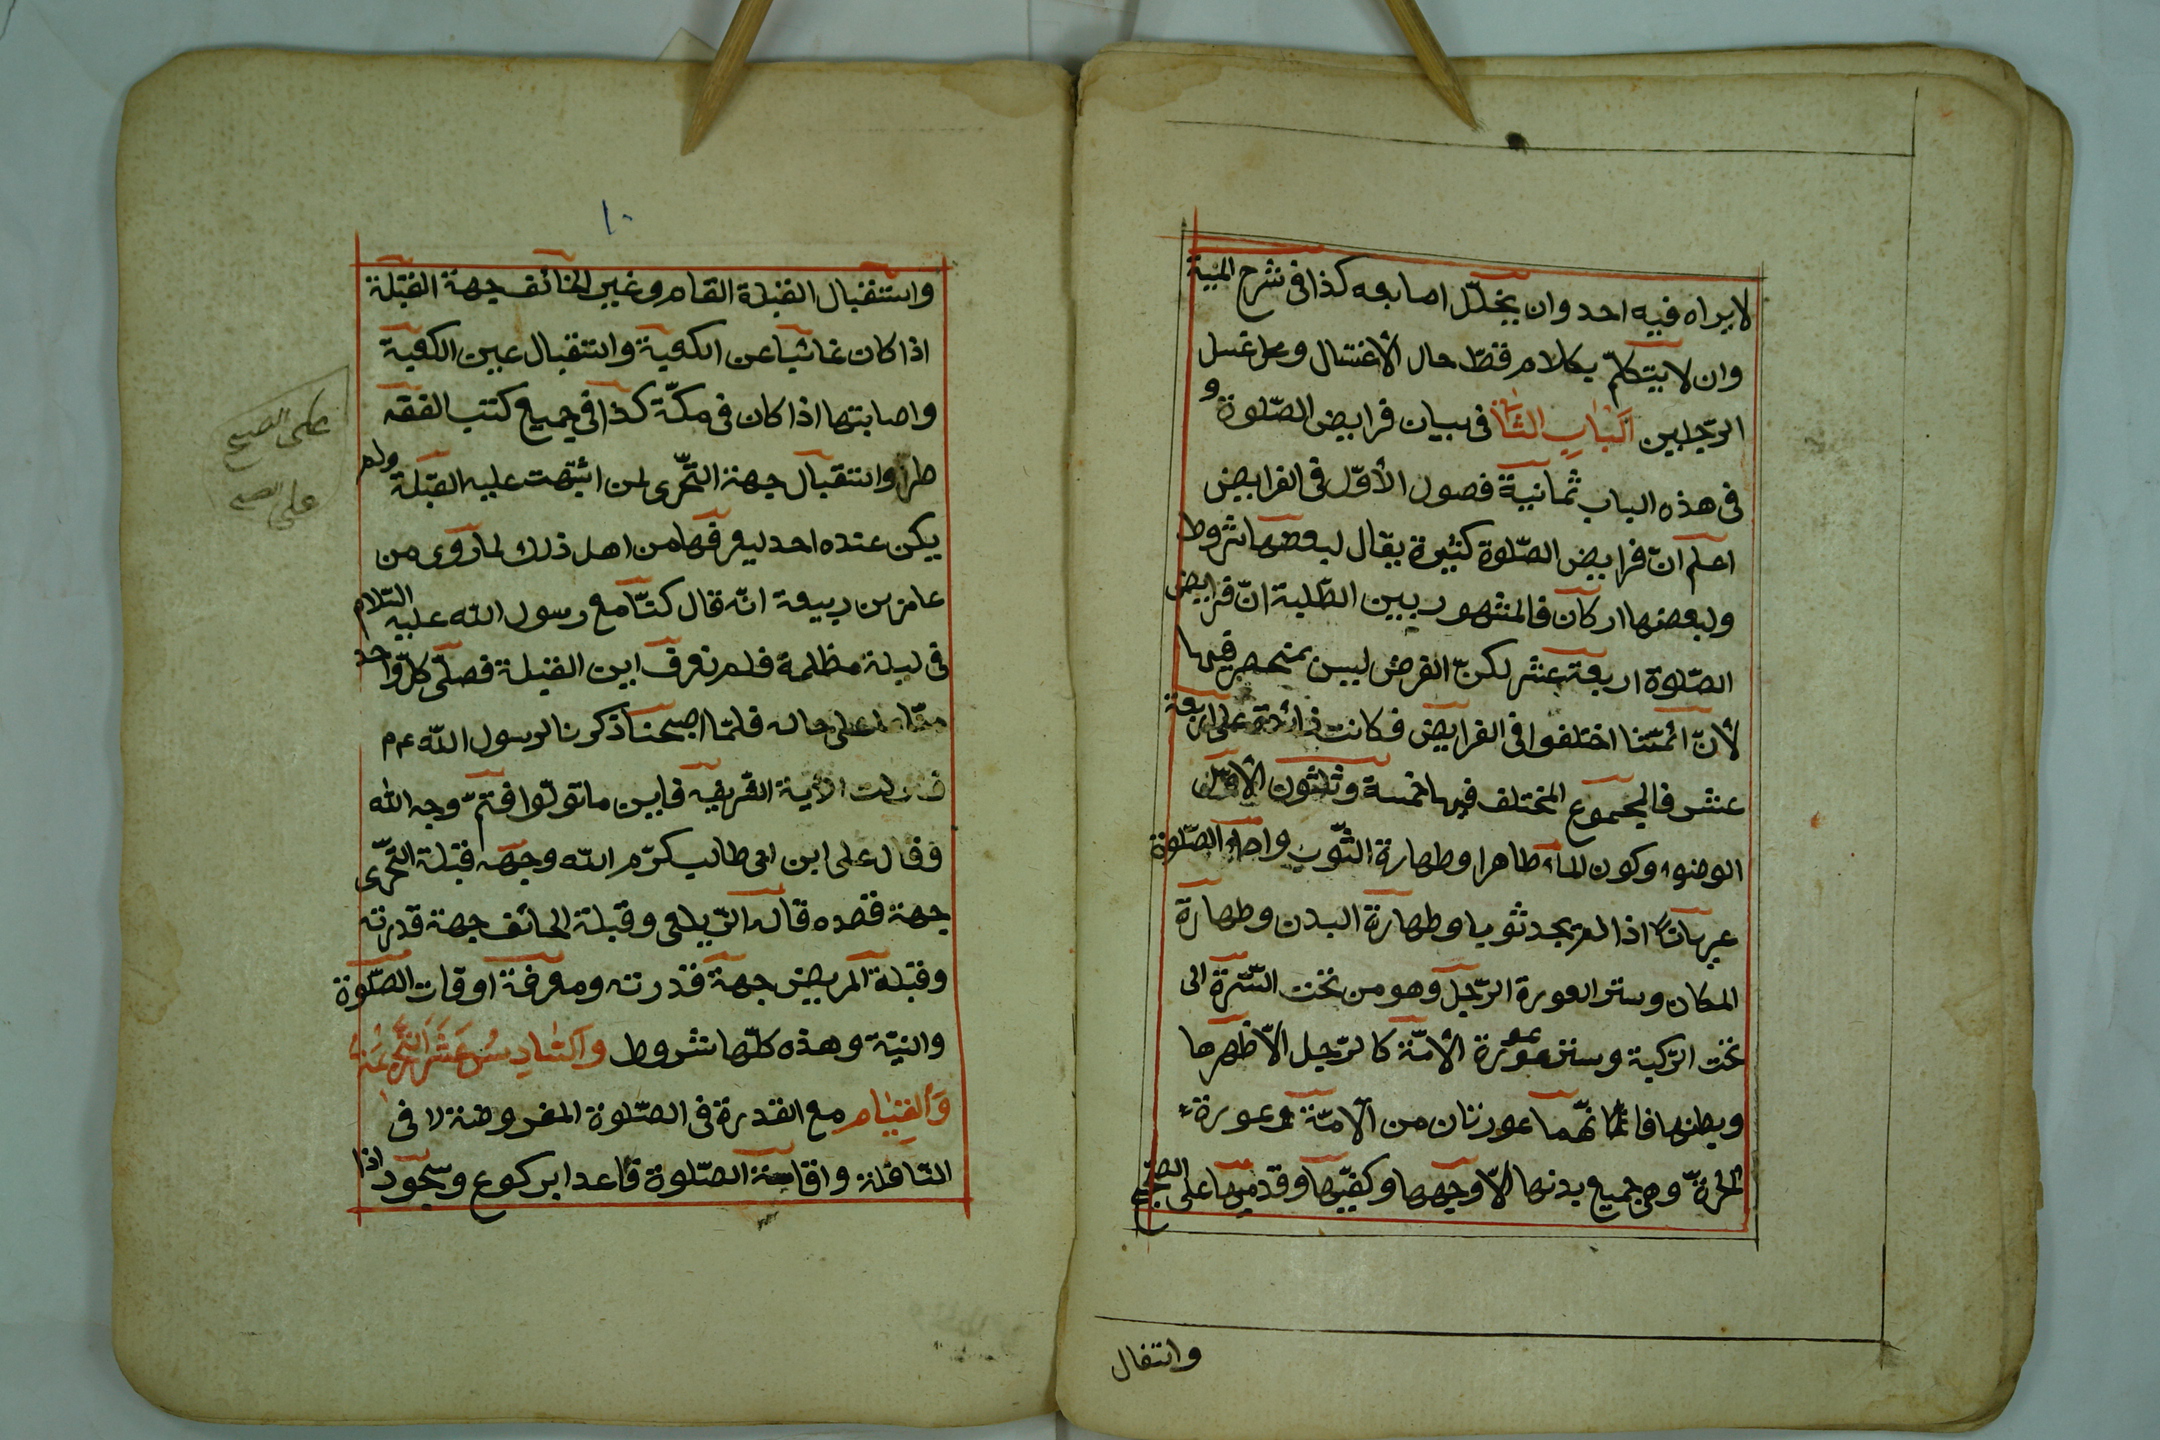 لا يراه فيه احد وان يخلّل اصابعه كذا فى شرح المنية
وان لا يتكلّم بكلام قطّ حال الأغتسال و غسل
الرّجلين اَلْبَابِ الثَّانِى فى بيان فرايض الصّلوة و
فى هذه الباب ثمانية فصول الأوّل فى الفرايض
اعلم انّ فرايض الصّلوة كثيرة يقال لبعضها شروط
ولبعضها اركان فالمشهور بين الطّلبة انّ فرايض
الصّلوة اربعة عشر لكنّ الفرض ليس بمنحصر فيها
لأنّ ائمّتنا اختلفوا فى الفرايض فكانت زائدة على اربعة
عشر فالمجموع المختلف فيها خمسة وثلثون الأوّل
الوضوء وكون الماء طاهرا وطهارة الثّوب واصل الصّلوة
عريانا اذا لم يجد ثوبا وطهارة البدن وطهارة
المكان وستر العورة الرّجل وهو من تحت السّرّة الى
تحت الرّكبة وستر عورة الأمّة كالرّجل الاّ ظهرها
وبطنها فانّهما عورتان من الأمّة وعورة
الحرّة وهى جميع بدنها الاّ وجهها وكفّيها وقدميها على الصّحيح
واستقبال
١٠
واستقبال القبلة القام وغير الخائف جهة القبلة
اذا كان غائبا عن الكعبة واستقبال عين الكعبة
واصابتها اذا كان فى مكّة كذا فى جميع كتب الفقه
طرّا واستقبال جهة التّحّرى لمن اشتبهت عليه القبلة ولم
يكن عنده احد ليعرفها من اهل ذلك لما روى من
عامر بن ربيعة انّه قال كنّا مع رسول الله عليه السّلام
فى ليلة مظلمة فلم نعرف اين القبلة فصلّى كلّ واحد
منّا على حاله فلمّا اصبحنا ذكرنا لرسول الله عم
فنزلت الأية الشّريفه فاين ما تولّوا فثمّ وجه الله
وقال على ابن ابى طالب كرّم الله وجهه قبلة التّحّرى
جهة قصده قال الزّيلعى وقبلة الخائف جهة قدرته
وقبلة المريض جهة قدرته ومعرفة اوقات الصّلوة
والنيّة وهذه كلّها شروط وَالسَّادِسُ عَشَرَ التَّحْرِيمَة
وَالْقِيَام مع القدرة فى الصّلوة المفروضة لا فى
النّافلة واقامة الصّلوة قاعدا بركوع وسجود اذا
على الصحيح
على الصحيح